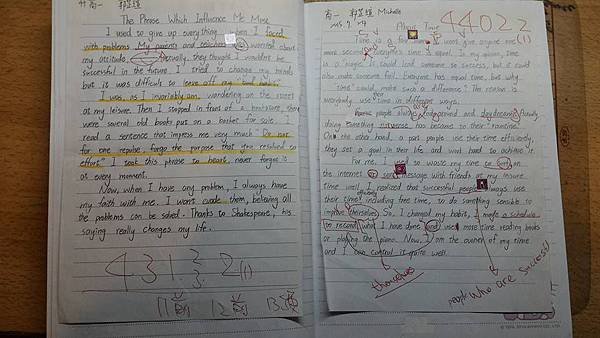 高一 郭芷瑄
The Phrase Which Influence Me Most
I used to give up everything when I faced
with problems. My parents and teachers worried about
my attitude. Actually, they thought I wouldn't be
successful in the future. I tried to change my mind,
but it was difficult to leave off my bad habit.
I was, as I invariably am, wandering on the street
at my leisure. Then I stopped in front of a bookstore, they
were several old books put on a basket for sale. I
read a sentence that impress me very much "Do not
for one repulse, forgo the purpose that you resolved to
effort." I took this phrase to heart, never forget it
at every moment.
Now, when I have any problem, I always have
my faith with me. I won't evade them, believing all
the problems can be solved. Thanks to Shakespeare, his
saying really changes my life.
4 3 1. 2. 3. 2 (1)
高一 郭芷瑄 Michelle
About Time
44022
(1)
Time is a won't give anyone one
more second. Everyone's time is equal. In my opinion, time
is a magic. It could lead someone to success, but it could
also make someone fail. Everyone has equal time, but why
time could make such a difference? The reason is
everybody use time in different ways.
people always and daydreamed
doing something has become to their routine.
On the other hand, a part people use their time efficiently,
they set a goal in their life and work hard to achieve it.
For me, I used to waste my time to surf on
the internet or send message with friends at my leisure
time. Well, I realized that successful people always use
their time, including free time, to do something sensible to
improve themselves. So, I changed my habit, I made a schedule
to record what I have done and use more time reading books
or playing the piano. Now, I am the owner of my time
and I can control it quite well.
themselves
people who are successful